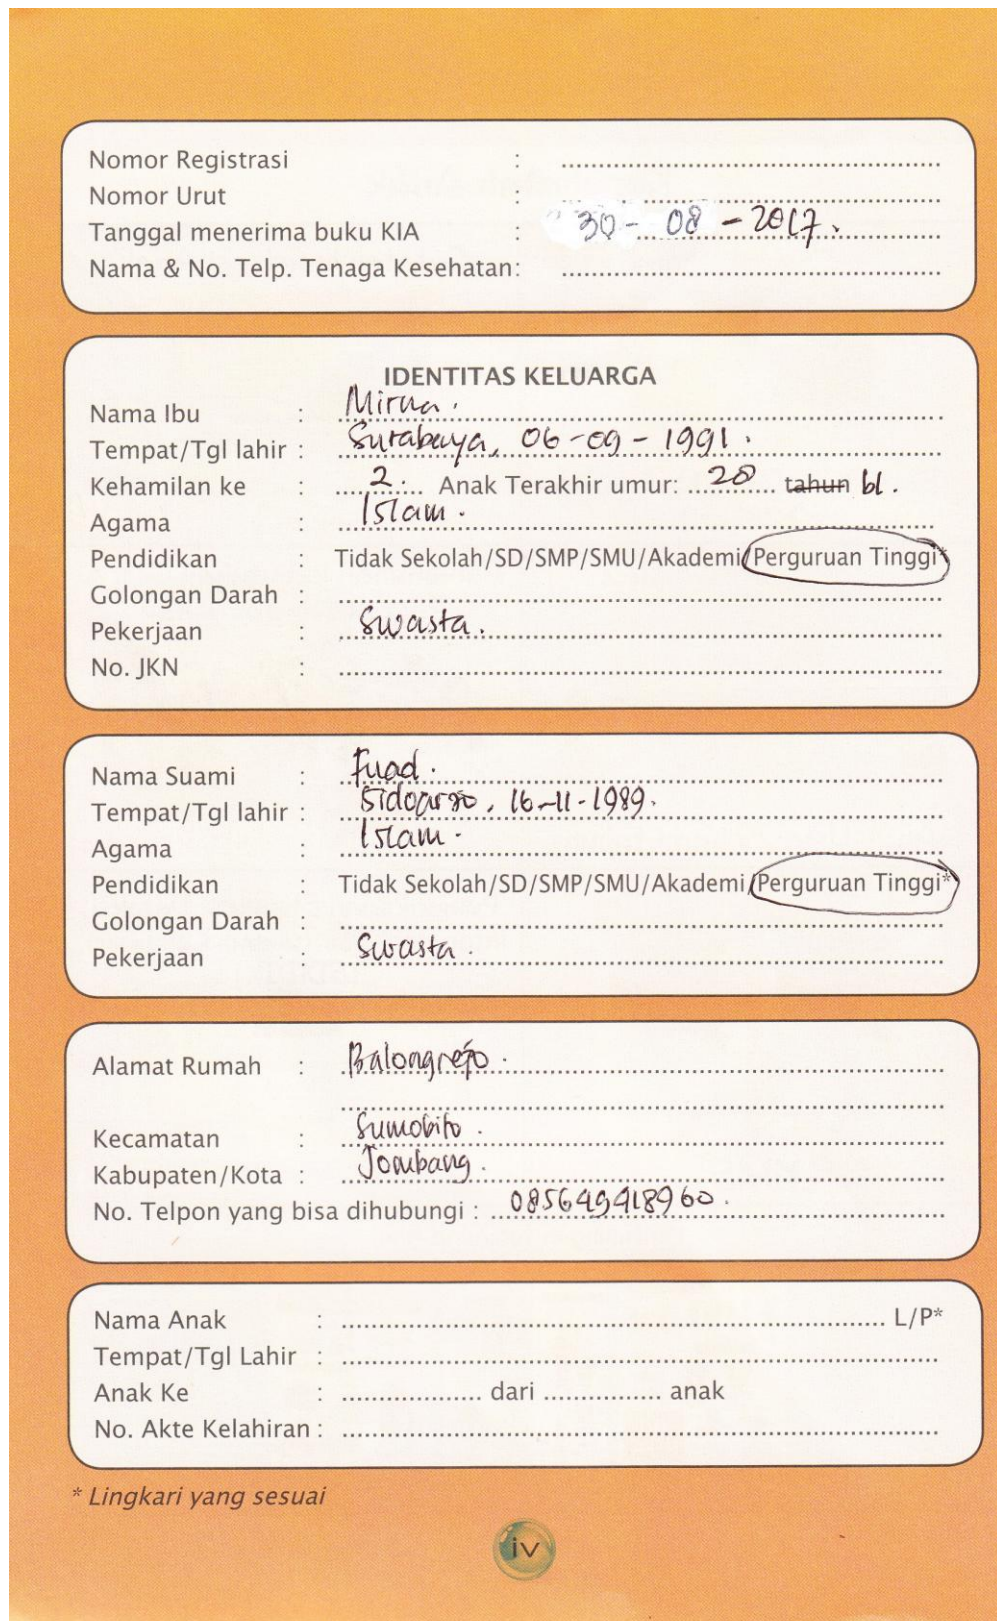 Nomor Registrasi : ........................
Nomor Urut : ........................
Tanggal menerima buku KIA : 30 - 08 - 2017.
Nama & No. Telp. Tenaga Kesehatan: ........................
IDENTITAS KELUARGA
Nama Ibu : Mirna.
Tempat/Tgl lahir : Surabaya, 06-09-1991.
Kehamilan ke : 2. Anak Terakhir umur: 20 tahun bl.
Agama : Islam.
Pendidikan : Tidak Sekolah/SD/SMP/SMU/Akademi/Perguruan Tinggi*
Golongan Darah : ........................
Pekerjaan : Swasta.
No. JKN : ........................
Nama Suami : Fuad.
Tempat/Tgl lahir : Sidoarjo, 16-11-1989.
Agama : Islam.
Pendidikan : Tidak Sekolah/SD/SMP/SMU/Akademi/Perguruan Tinggi*
Golongan Darah : ........................
Pekerjaan : Swasta.
Alamat Rumah : Balongrejo.
Kecamatan : Sumobito.
Kabupaten/Kota : Jombang.
No. Telpon yang bisa dihubungi : 085649418960.
Nama Anak : ........................ L/P*
Tempat/Tgl Lahir : ........................
Anak Ke : ........... dari ........... anak
No. Akte Kelahiran : ........................
* Lingkari yang sesuai
iv